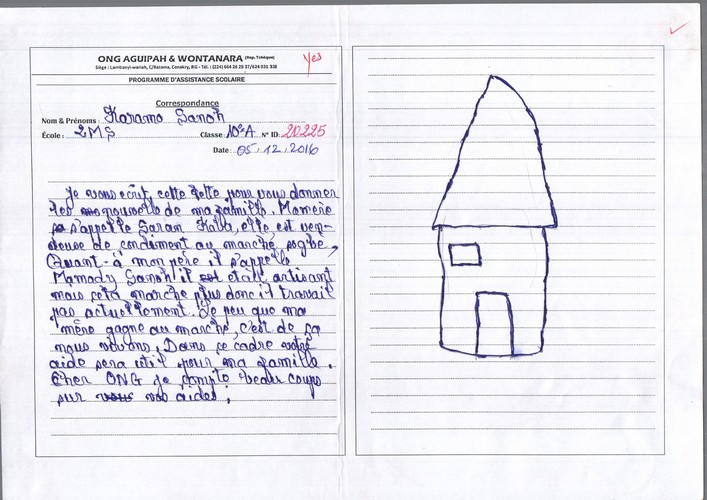 ONG AGUIPAH & WONTANARA (Rep. Tchèque)
Siège : Lambanyi-wariah, C/Ratoma, Conakry, RG - Tél. : (224) 664 26 29 37/624 031 338
Yes
PROGRAMME D'ASSISTANCE SCOLAIRE
Correspondance
Nom & Prénoms : Karamo Sanoh
École : 2MS Classe 10e A N° ID: 20225
Date : 05.12.2016
Je vous écrit cette lette pour vous donner
les nouvelle de ma famille. Mamère
s'appelle Saran Kaba, elle est ven-
deuse de condiment au marché
Quant-à mon père il s'appelle
Mamady Sanoh il était artisant
mais cela marche plus donc il travail
pas actuellement. Le peu que ma
mère gagne au marché, c'est de ça
nous vivons. Dans ce cadre votre
aide sera util pour ma famille.
Cher ONG je compte beau coups
sur vos aides.